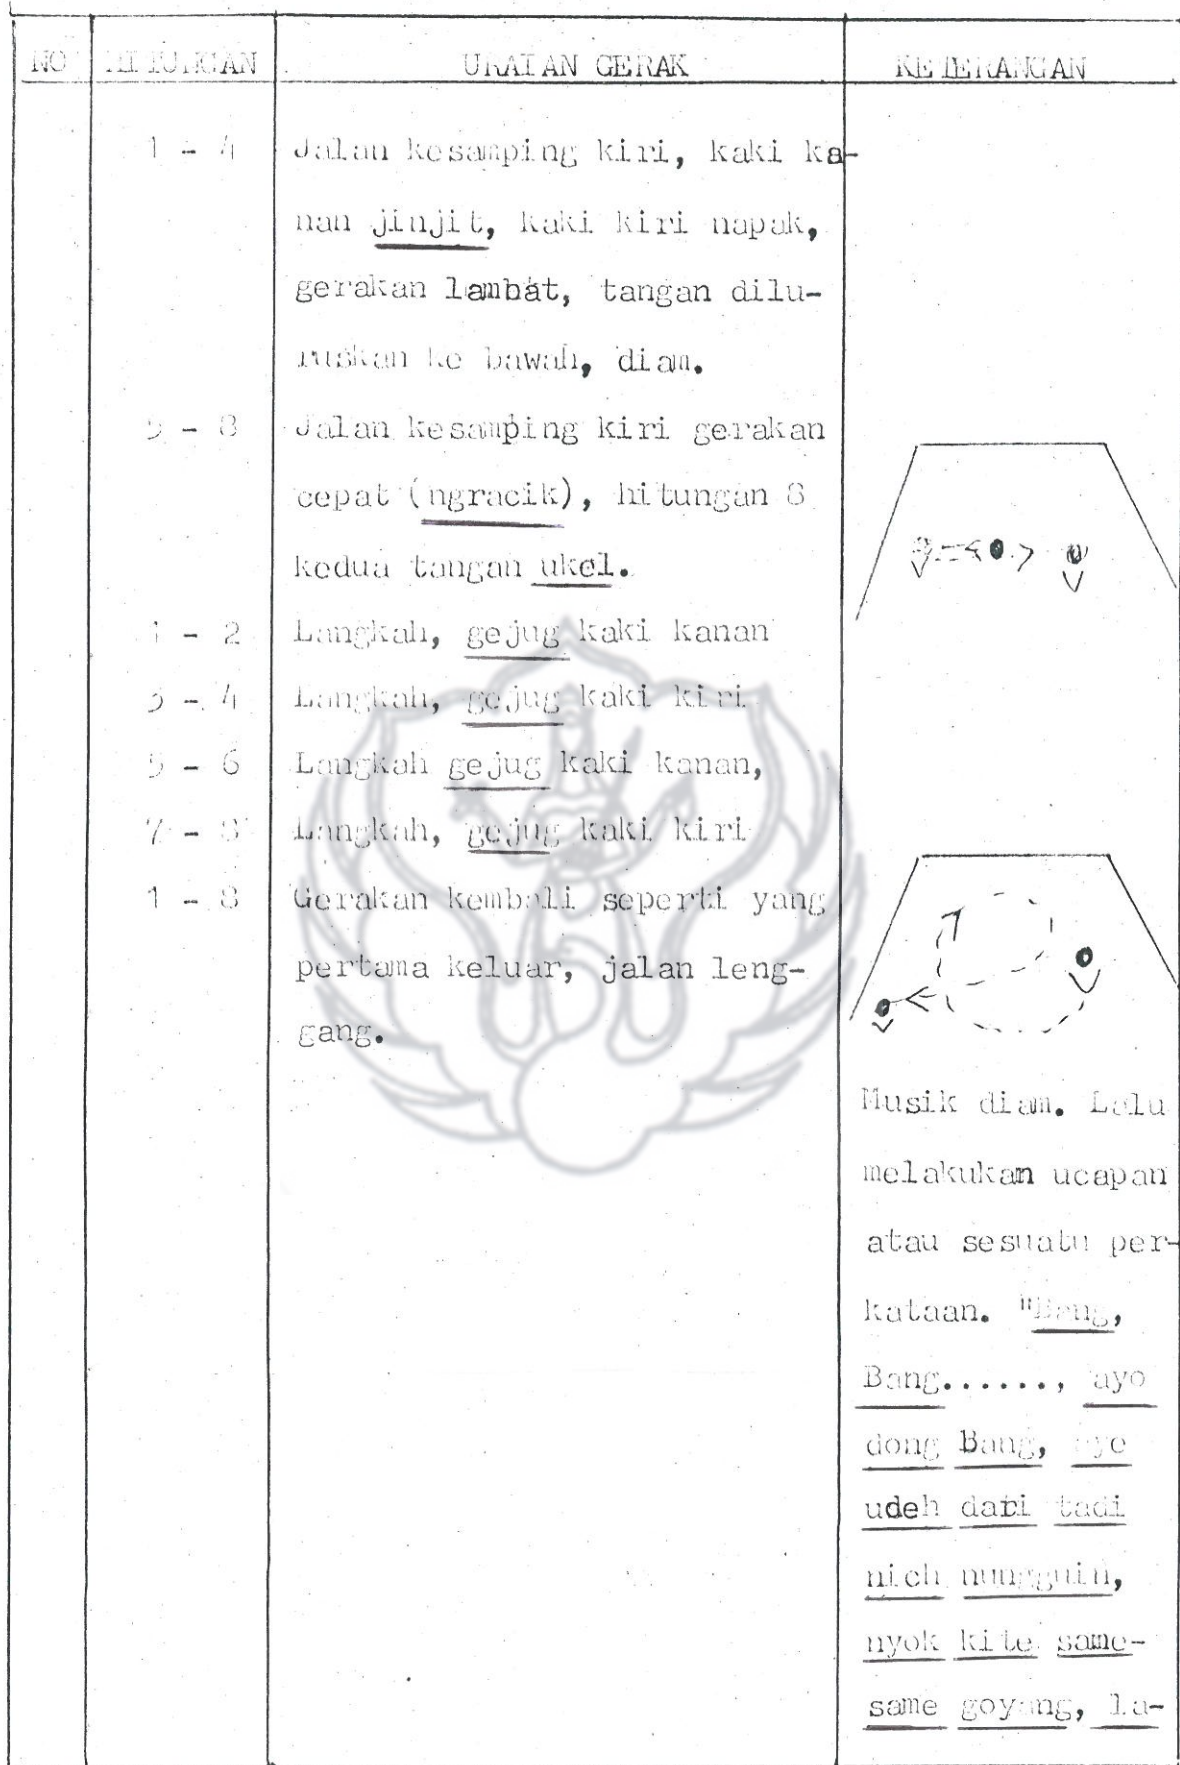 NO HITUNGAN URAIAN GERAK KETERANGAN
1 - 4 Jalan kesamping kiri, kaki ka-
nan jinjit, kaki kiri napak,
gerakan lambat, tangan dilu-
ruskan ke bawah, diam.
5 - 8 Jalan kesamping kiri gerakan
cepat (ngracik), hitungan 8
kedua tangan ukel.
1 - 2 Langkah, gejug kaki kanan
3 - 4 Langkah, gejug kaki kiri
5 - 6 Langkah gejug kaki kanan,
7 - 8 Langkah, gejug kaki kiri
1 - 8 Gerakan kembali seperti yang
pertama keluar, jalan leng-
gang.
Musik diam. Lalu
melakukan ucapan
atau sesuatu per-
kataan. "Bang,
Bang......, ayo
dong Bang, aye
udeh dari tadi
nich nungguin,
nyok kite same-
same goyang, la-